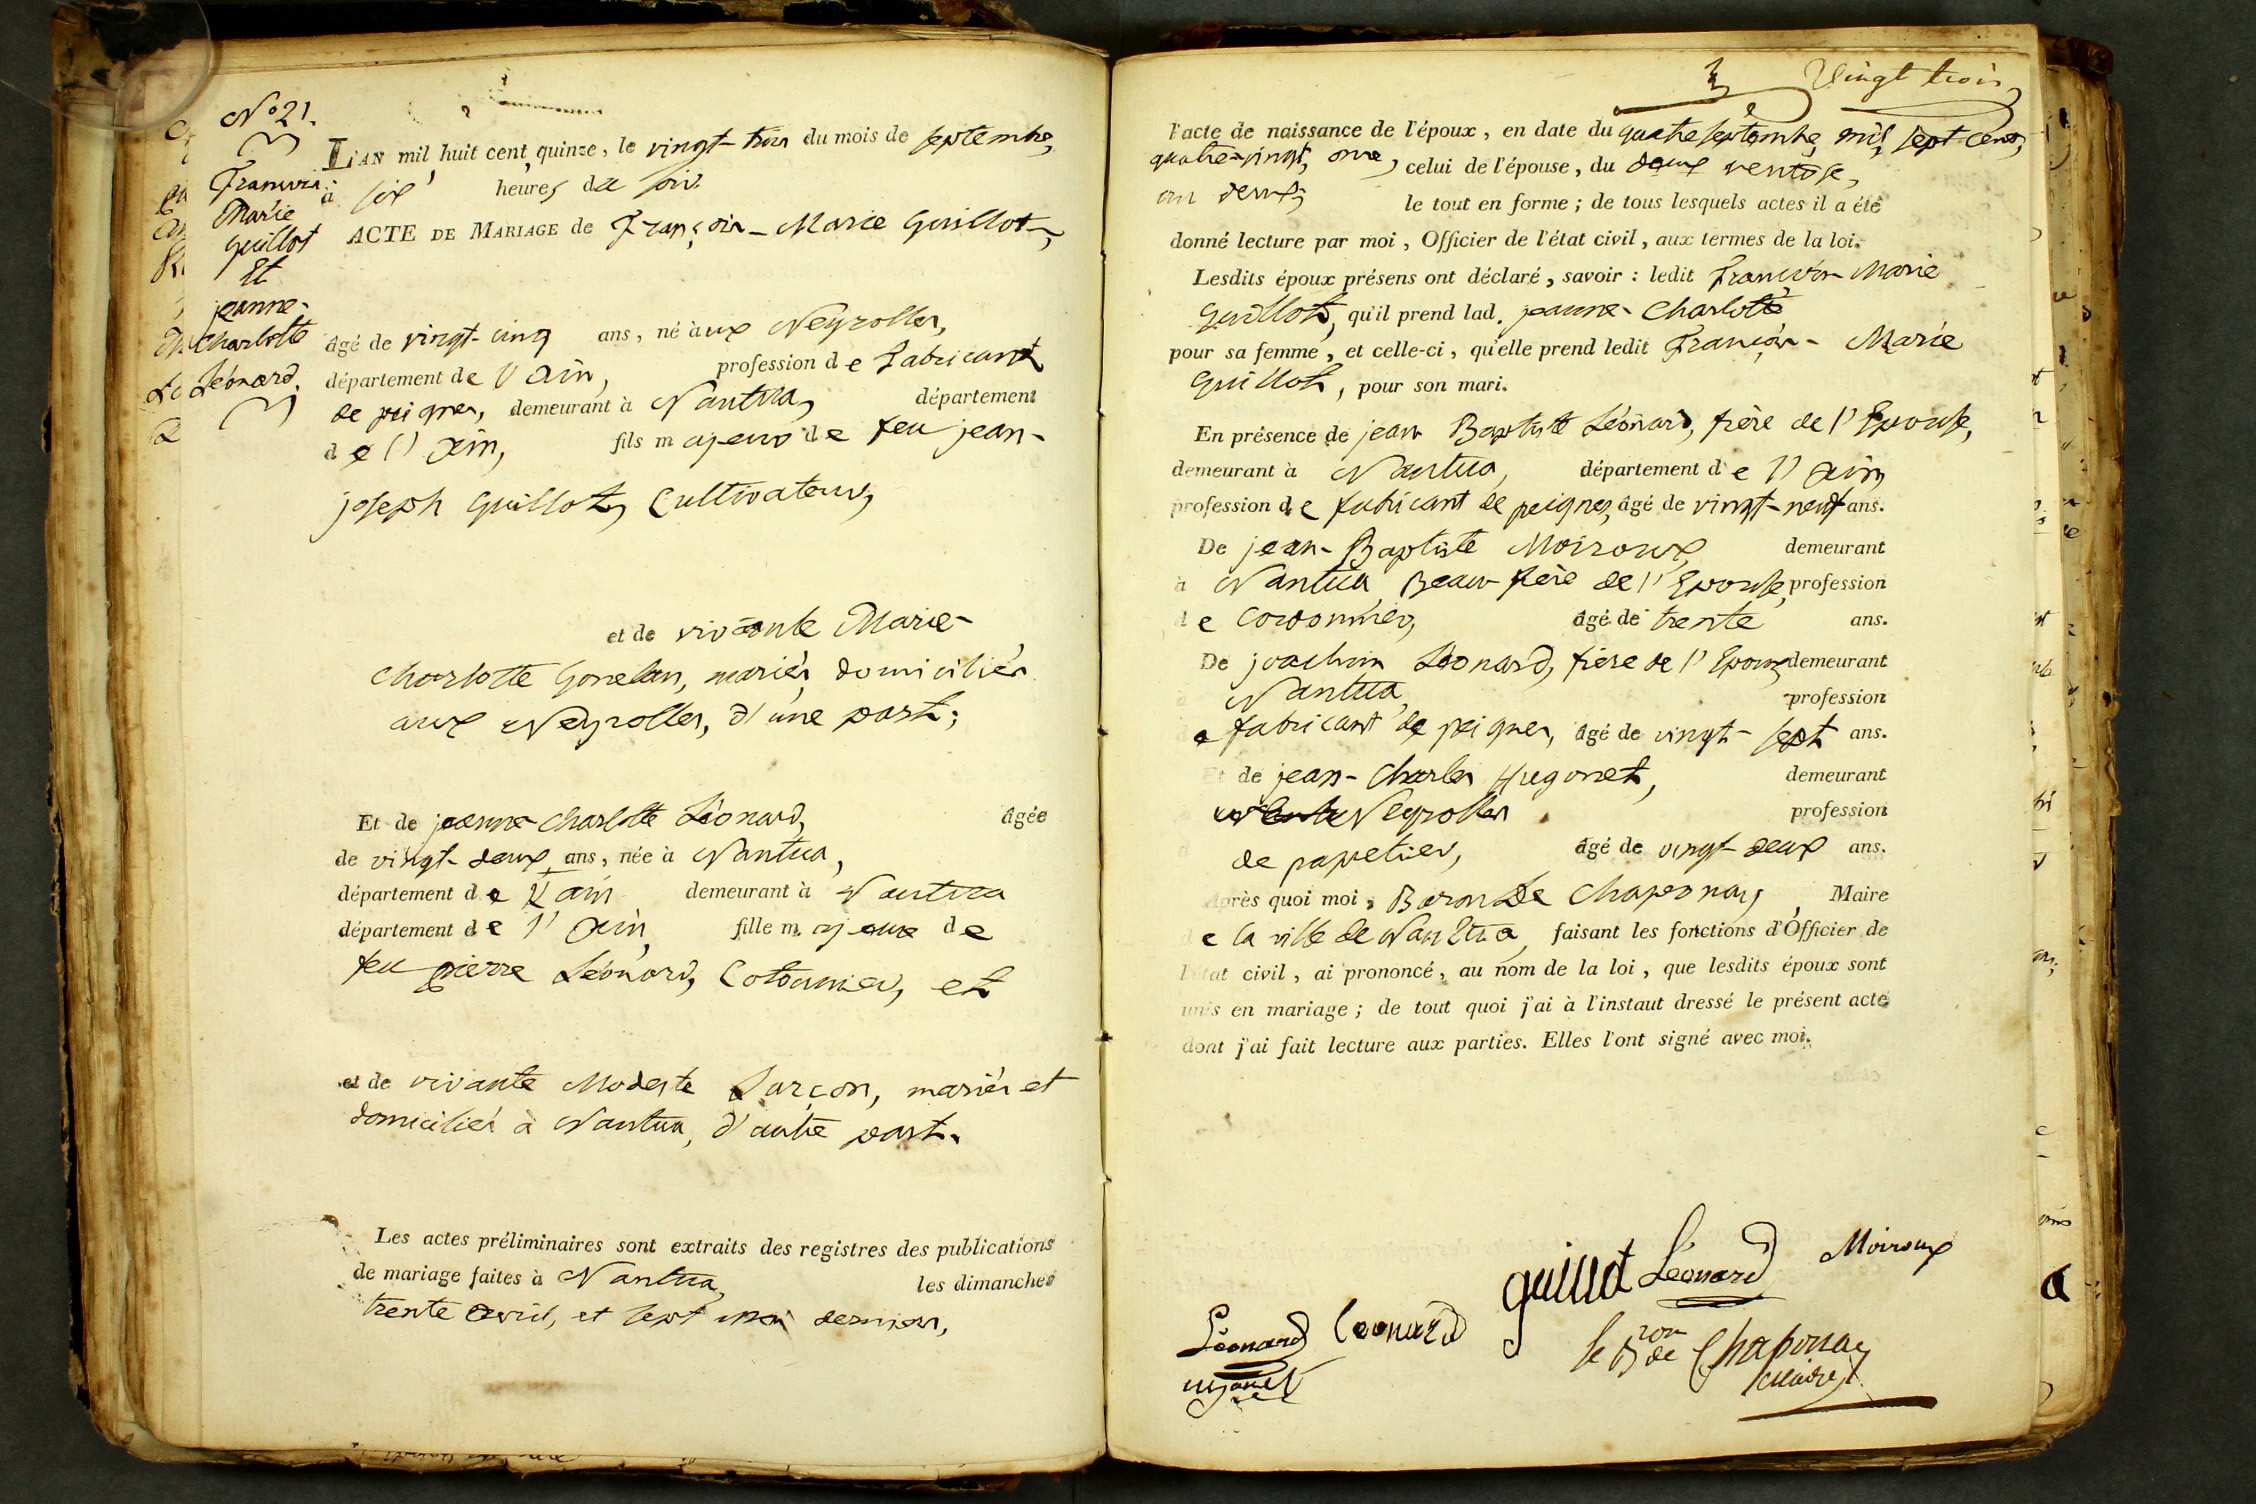 N° 21.
François
Marie
Guillot
Et
jeanne-
Charlotte
Léonard.
L'AN mil huit cent quinze, le vingt-trois du mois de septembre,
à six heures du soir
ACTE DE MARIAGE de François-Marie Guillot,
âgé de vingt-cinq ans, né aux Neyrolles,
département de l'ain, profession de fabricant
de peignes, demeurant à Nantua, département
de l'ain, fils majeur de feu jean-
joseph Guillot, Cultivateur,
et de vivante Marie-
Charlotte Gonelan, mariés, domiciliés
aux Neyrolles, d'une part;
Et de jeanne-charlotte Léonard, âgée
de vingt-deux ans, née à Nantua,
département de l'ain demeurant à Nantua
département de l'ain, fille majeure de
feu pierre Léonard, et
et de vivante Modeste Surçon, mariés et
domiciliés à Nantua, d'autre part.
Les actes préliminaires sont extraits des registres des publications
de mariage faites à Nantua, les dimanches
trente avril, et sept mai derniers,
Vingt trois
l'acte de naissance de l'époux, en date du quatre septembre mil sept cens
quatre-vingt onze, celui de l'épouse, du deux ventose,
an deux; le tout en forme; de tous lesquels actes il a été
donné lecture par moi, Officier de l'état civil, aux termes de la loi.
Lesdits époux présens ont déclaré, savoir: ledit François Marie
Guillot, qu'il prend lad. jeanne-Charlotte
pour sa femme, et celle-ci, qu'elle prend ledit François-Marie
Guillot, pour son mari.
En présence de jean Baptiste Léonard, frère de l'Epouse,
demeurant à Nantua, département de l'ain
profession de fabricant de peignes, âgé de vingt-neuf ans.
De jean-Baptiste Moiroux, demeurant
à Nantua, Beau-frère de l'Epouse, profession
de cordonnier, âgé de trente ans.
De joachim Léonard, frère de l'Epouse demeurant
à Nantua, profession
de fabricant de peignes, âgé de vingt-sept ans.
Et de jean-Charles Hugonet, demeurant
Neyrolles profession
de papetier, âgé de vingt-deux ans.
Après quoi moi, Baron De Chaponay, Maire
de la ville de Nantua, faisant les fonctions d'Officier de
l'état civil, ai prononcé, au nom de la loi, que lesdits époux sont
unis en mariage; de tout quoi j'ai à l'instaut dressé le présent acte
dont j'ai fait lecture aux parties. Elles l'ont signé avec moi.
guillot Léonard Moiroux
Léonard Leonard
le Bon de Chaponay
Maire